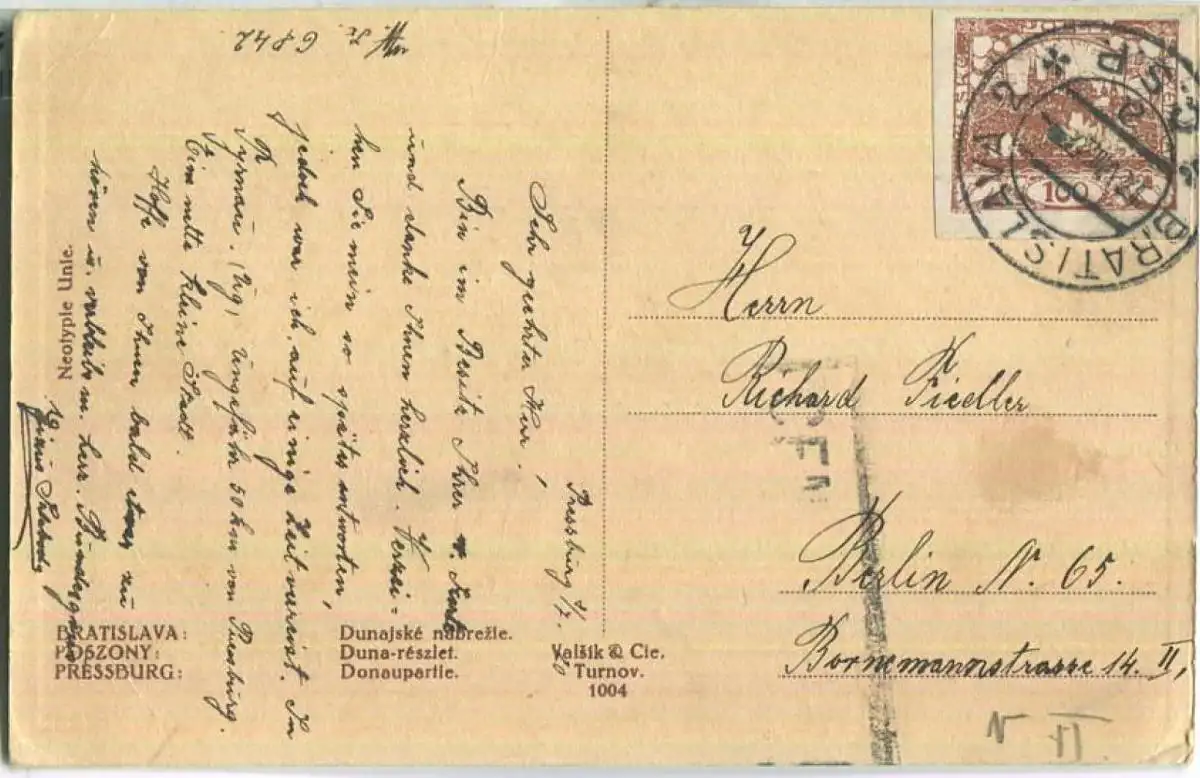 6842
Pressburg
Sehr geehrter Herr,
Bin im Besitz Ihrer w. Karte
und danke Ihnen herzlich. Verzei=
hen Sie mein so spätes antworten,
jedoch war ich auf einige Zeit verreist. In
Tyrnau. Ung, ungefähr 50 km von Pressburg.
Eine nette kleine Stadt.
Hoffe von Ihnen bald etwas zu
hören u. verbleib m. herz.
Neotypie Unie.
BRATISLAVA: Dunajské nábrežie.
POSZONY: Duna-részlet.
PRESSBURG: Donaupartie.
Valšík & Cie.
Turnov.
1004
100
BRATISLAVA 2
Č.S.P.
Herrn
Richard Fiedler
Berlin N. 65.
Bornemannstrasse 14. II,
N II